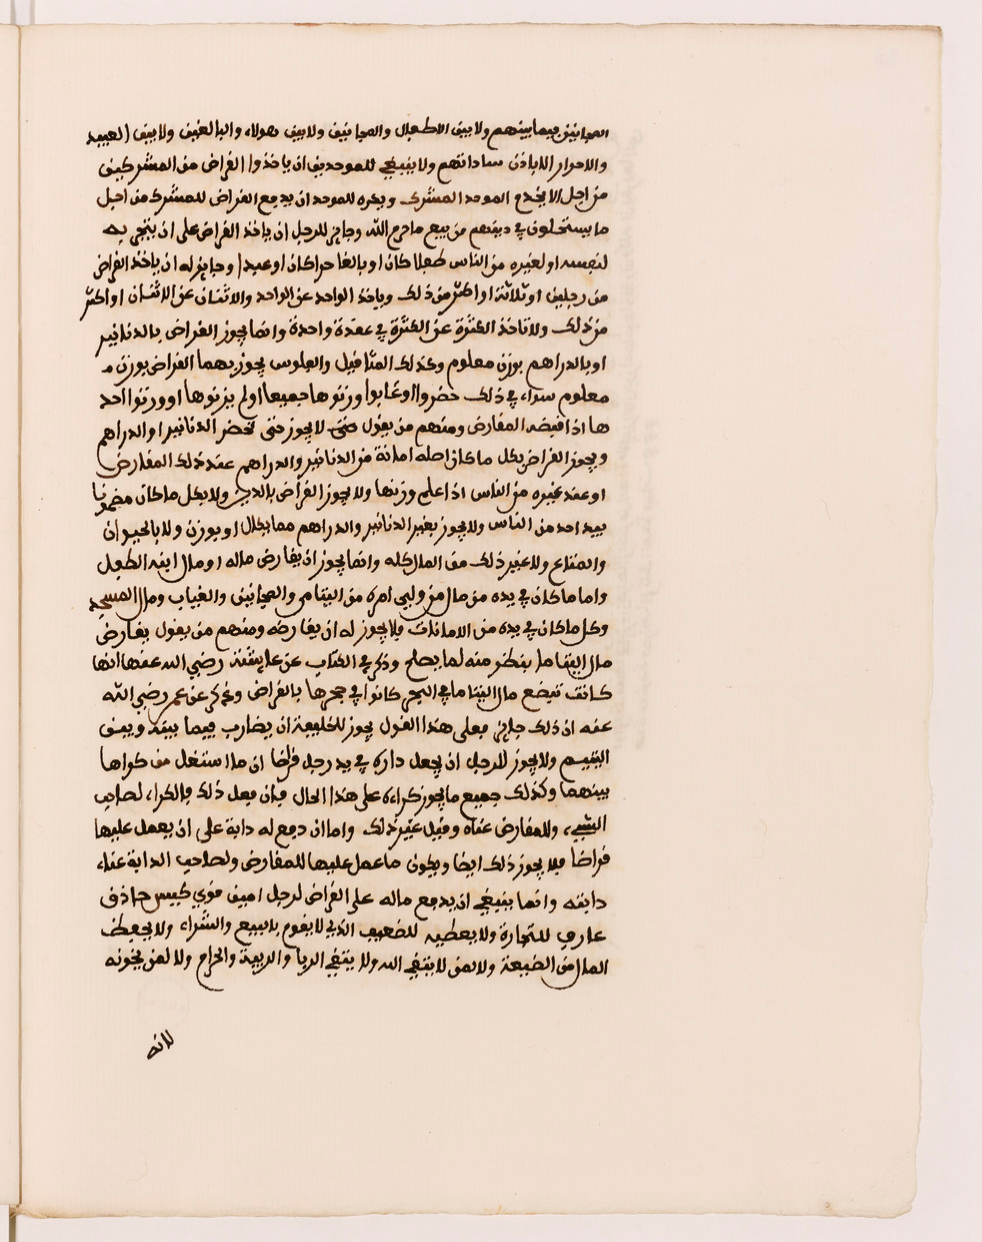 المجانين فيما بينهم ولا بين الاطفال والمجانين ولا بين هولاء والبالغين ولا بين العبيد
والاحرار الا باذن ساداتهم ولا ينبغي للموحدين ان ياخذوا القراض من المشركين
من اجل الا يخدع الموحد المشرك ويكره للموحد ان يدفع القراض للمشرك من اجل
ما يستحلون في دينهم من بيع ما حرم الله وجايز للرجل ان ياخذ القراض على ان يتجر به
لنفسه او لغيره من الناس طفلا كان او بالغا حرا كان او عبدا وجايز له ان ياخذ القراض
من رجلين او ثلاثة او اكثر من ذلك وياخذ الواحد عن الواحد والاثنان عن الاثنان او اكثر
من ذلك ولا تاخذ الكثرة عن الكثرة في عقدة واحدة وانما يجوز القراض بالدنانير
او بالدراهم بوزن معلوم وكذلك المثاقيل والفلوس يجوز بهما القراض بوزن
معلوم سواء في ذلك حضروا او غابوا وزنوها جميعا او لم يزنوها او وزنوا احد
ها اذا قبضه المقارض ومنهم من يقول لا يجوز حتى تحضر الدنانير او الدراهم
ويجوز القراض بكل ما كان اصله امانة من الدنانير والدراهم عند ذلك المقارض
او عند غيره من الناس اذا علم وزنها ولا يجوز القراض بالدين ولا بكل ما كان مضمونا
بيد احد من الناس ولا يجوز بغير الدنانير والدراهم مما يكال او يوزن ولا بالحيوان
والمتاع ولا غير ذلك من المال كله وانما يجوز ان يقارض ماله او مال ابنه الطفل
واما ما كان في يده من مال من ولي امره من اليتامى والمجانين والغياب ومال المسجد
وكل ما كان في يده من الامانات فلا يجوز له ان يقارضه ومنهم من يقول يقارض
مال اليتاما ينظر منه لما يصلح وذكر في الكتاب عن عايشة رضي الله عنها انها
كانت تبضع مال اليتاما في البحر كانوا في حجرها بالقراض وذكر عن عمر رضي الله
عنه ان ذلك جايز فعلى هذا القول يجوز للخليفة ان يضارب فيما بينه وبين
اليتيم ولا يجوز للرجل ان يجعل داره في يد رجل قراضا ان ما استغل من كراها
بينهما وكذلك جميع ما يجوز كراءه على هذا الحال فان فعل ذلك فالكراء لصاحب
الشيء وللمقارض عناه وقيل غير ذلك واما ان دفع له دابة على ان يعمل عليها
قراضا فلا يجوز ذلك ايضا ويكون ما عمل عليها للمقارض ولصاحب الدابة عناء
دابته وانما ينبغي ان يدفع ماله على القراض لرجل امين قوي كيس حاذق
عارف للتجارة ولا يعطيه للضعيف الذي لا يقوم بالبيع والشراء ولا يحفظ
المال من الضيعة ولا لمن لا يتقي الله ولا يتقي الربا والريبة والحرام ولا لمن يخونه
لانه